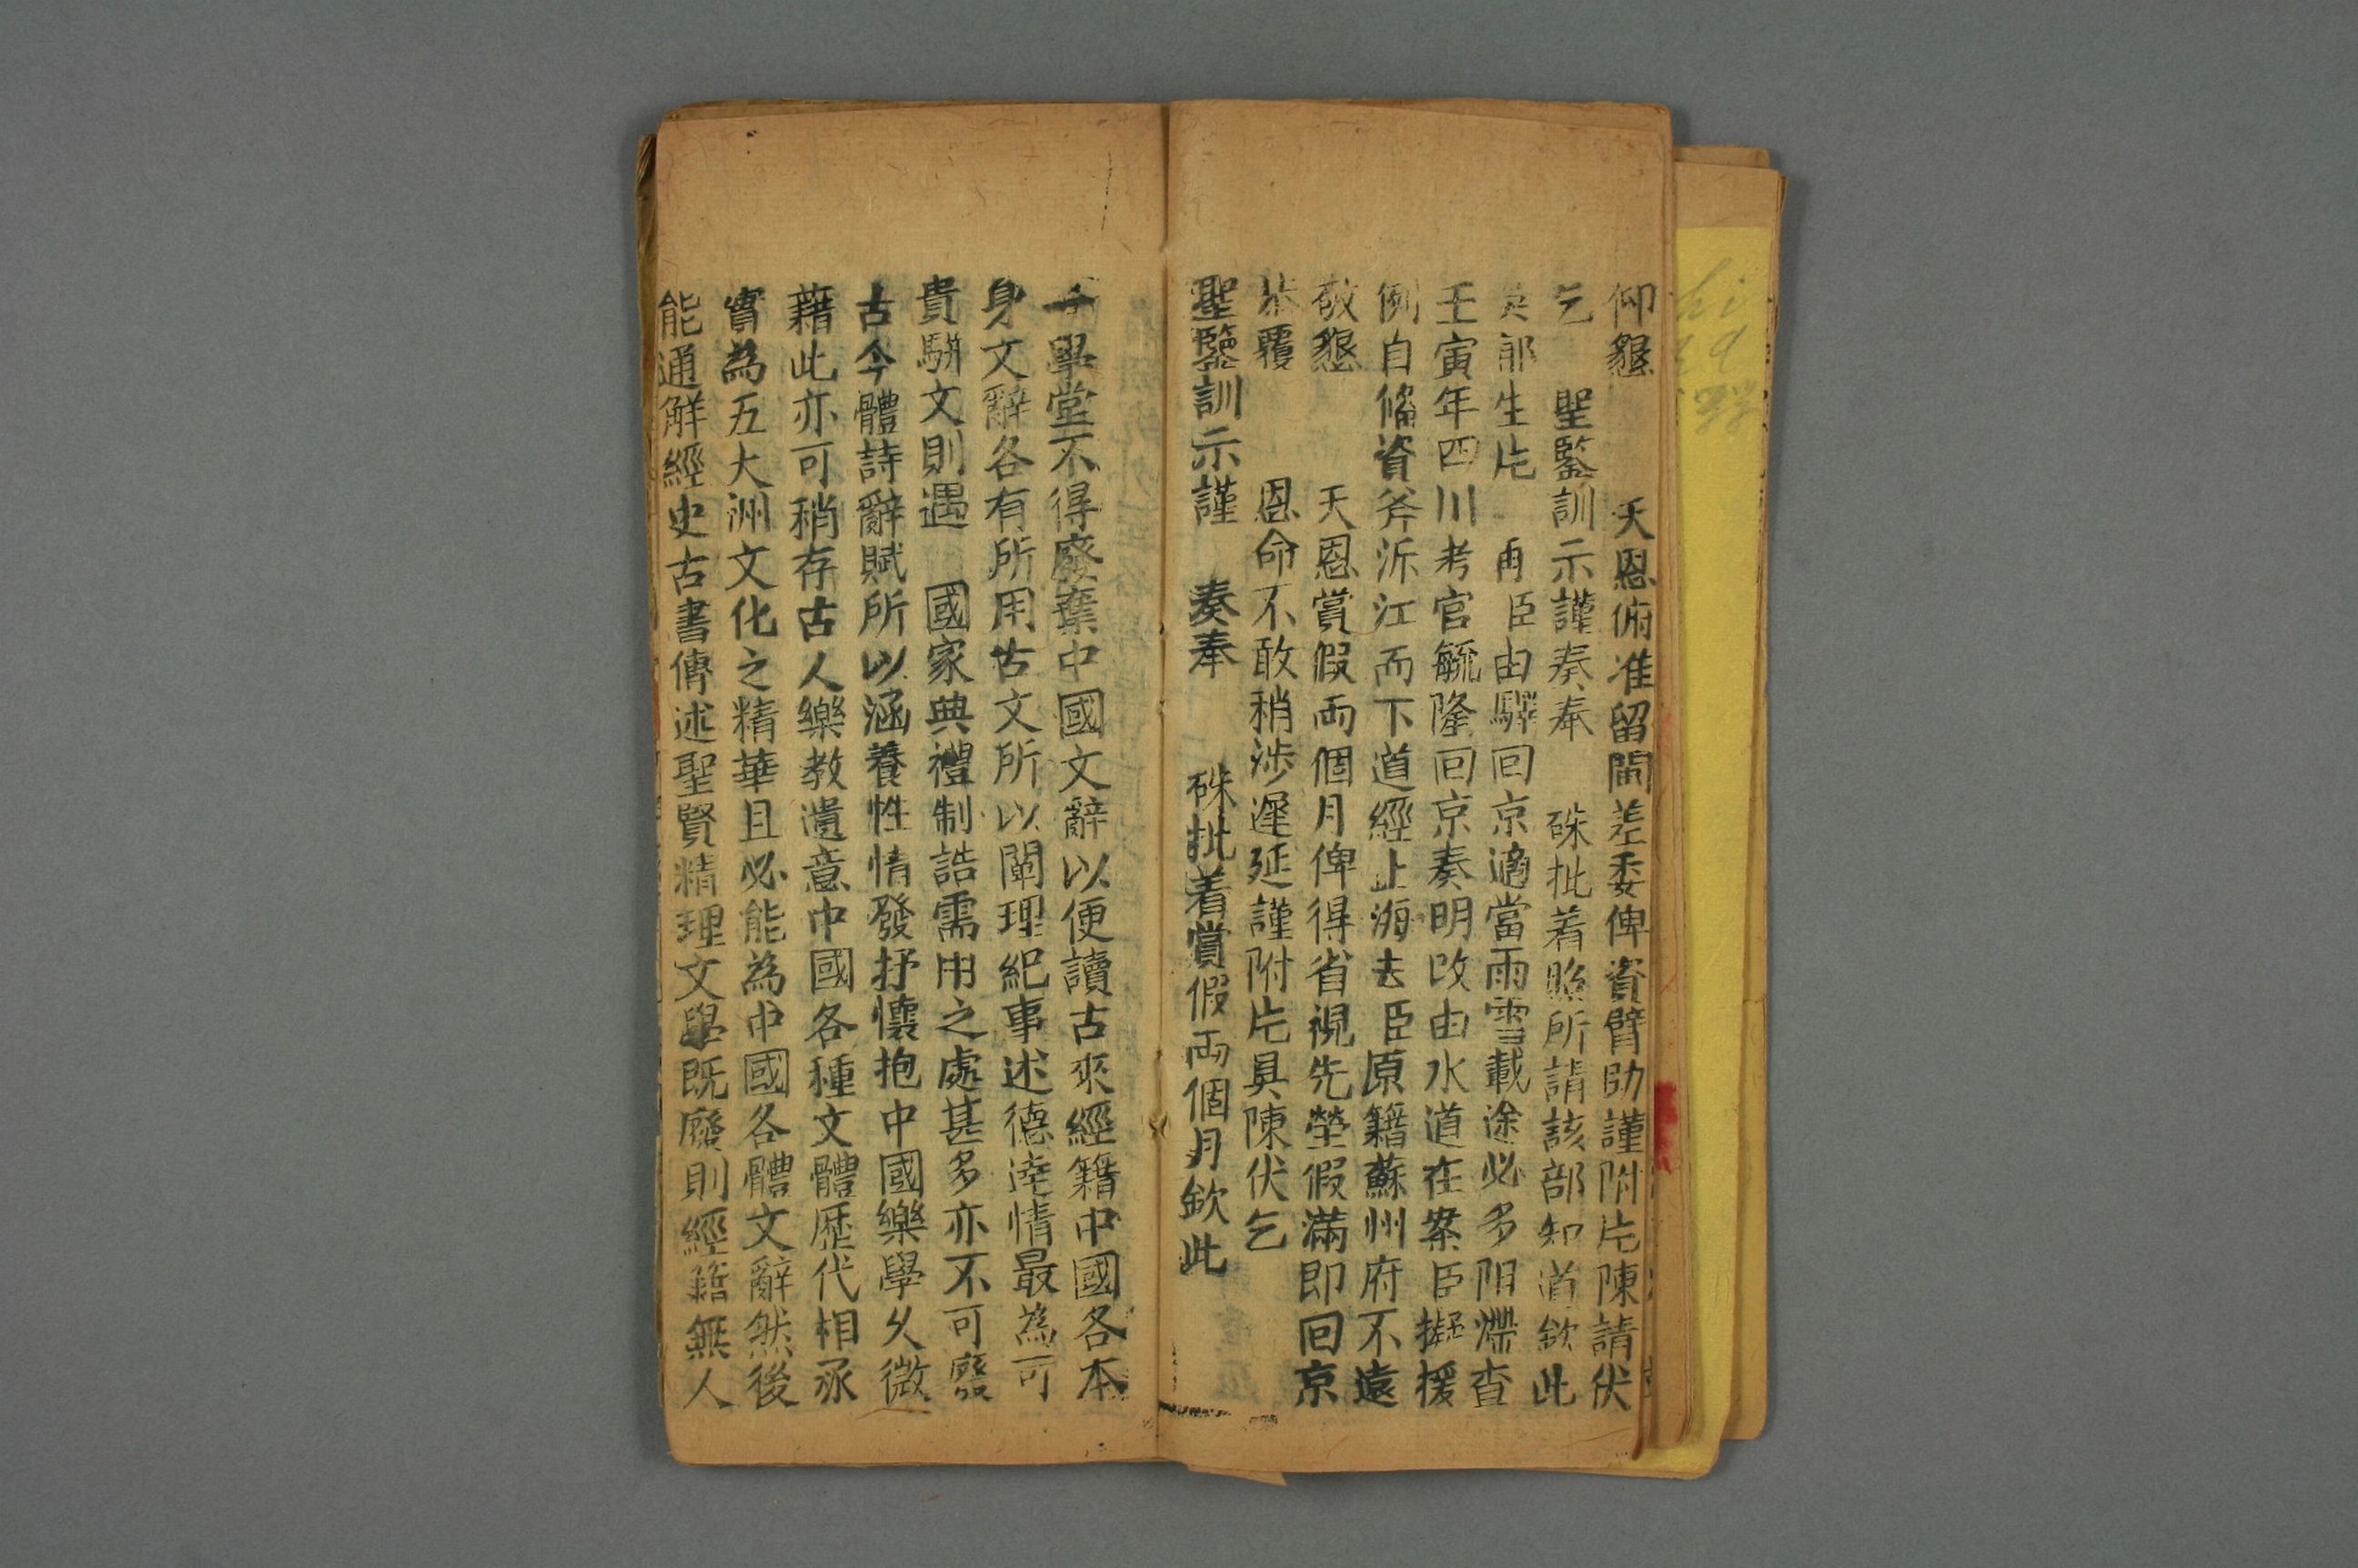 仰懇　天恩俯准留閩差委俾資臂助謹附片陳請伏
乞　聖鑒訓示謹奏奉　硃批着照所請該部知道欽此
郎生片　再臣由驛回京適當雨雪載途必多阻滯查
壬寅年四川考官毓隆回京奏明改由水道在案臣擬援
例自偹資斧泝江而下道經上海去臣原籍蘇州府不遠
敬懇　天恩賞假兩個月俾得省視先塋假滿即回京
恭覆　恩命不敢稍涉遲延謹附片具陳伏乞
聖鑒訓示謹　奏奉　硃批着賞假兩個月欽此
學堂不得廢棄中國文辭以便讀古來經籍中國各本
身文辭各有所用古文所以闡理紀事述德達情最為可
貴駢文則遇　國家典禮制誥需用之處甚多亦不可廢
古今體詩辭賦所以涵養性情發抒懷抱中國樂學久微
藉此亦可稍存古人樂教遺意中國各種文體歷代相承
實為五大洲文化之精華且必能為中國各體文辭然後
能通解經史古書傳述聖賢精理文學既廢則經籍無人